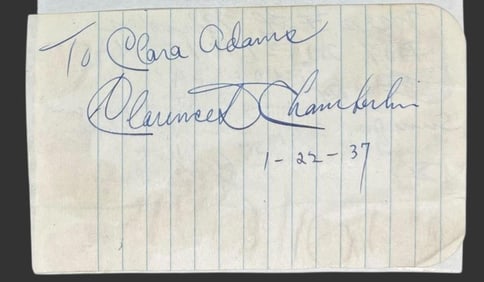 To Clara Adams
Clarence D Chamberlin
1-22-37